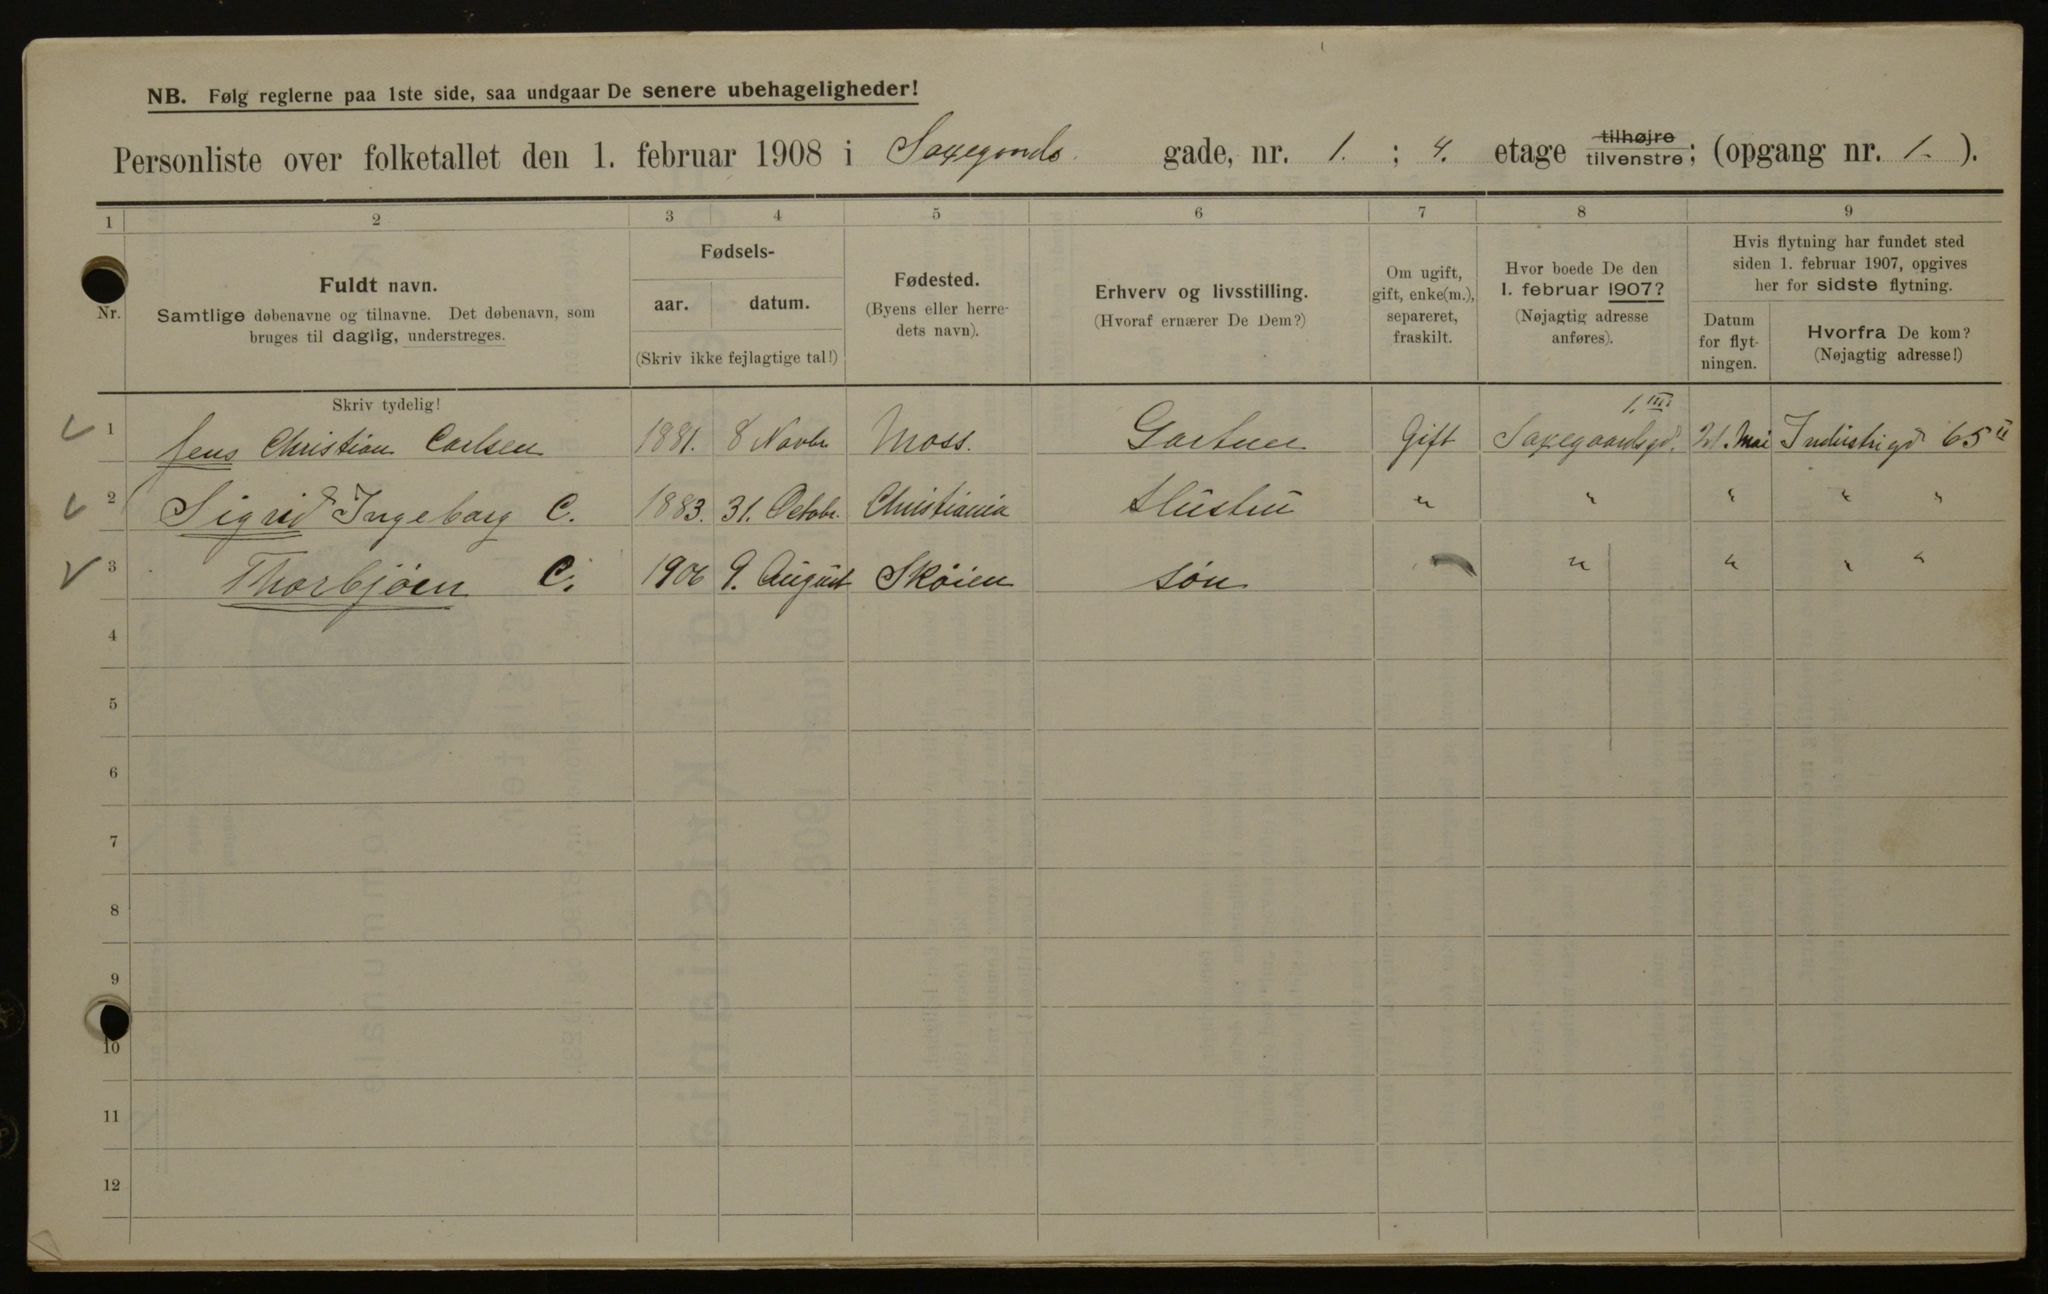 NB. Følg reglerne paa 1ste side, saa undgaar De senere ubehageligheder!
Personliste over folketallet den 1. februar 1908 i Saxegaards gade, nr. 1. ; 4. etage tilhøjre tilvenstre; (opgang nr. 1. ).
1 2 3 4 5 6 7 8 9
Nr.
Fuldt navn.
Samtlige døbenavne og tilnavne. Det døbenavn, som
bruges til daglig, understreges.
Skriv tydelig!
Fødsels-
aar. datum.
(Skriv ikke fejlagtige tal!)
Fødested.
(Byens eller herre-
dets navn).
Erhverv og livsstilling.
(Hvoraf ernærer De Dem?)
Om ugift,
gift, enke(m.),
separeret,
fraskilt.
Hvor boede De den
1. februar 1907?
(Nøjagtig adresse
anføres).
Hvis flytning har fundet sted
siden 1. februar 1907, opgives
her for sidste flytning.
Datum
for flyt-
ningen.
Hvorfra De kom?
(Nøjagtig adresse!)
1 Jens Christian Carlsen 1881. 8 Novbr Moss. Gartner Gift Saxegaardsgd. 1. IIII 21. Mai Industrigd 65 II
2 Sigrid Ingeborg C. 1883. 31. Octobr. Christiania Hustru " " " " "
3 Thorbjörn C. 1906 9. August Sköien sön " " " "
4
5
6
7
8
9
10
11
12